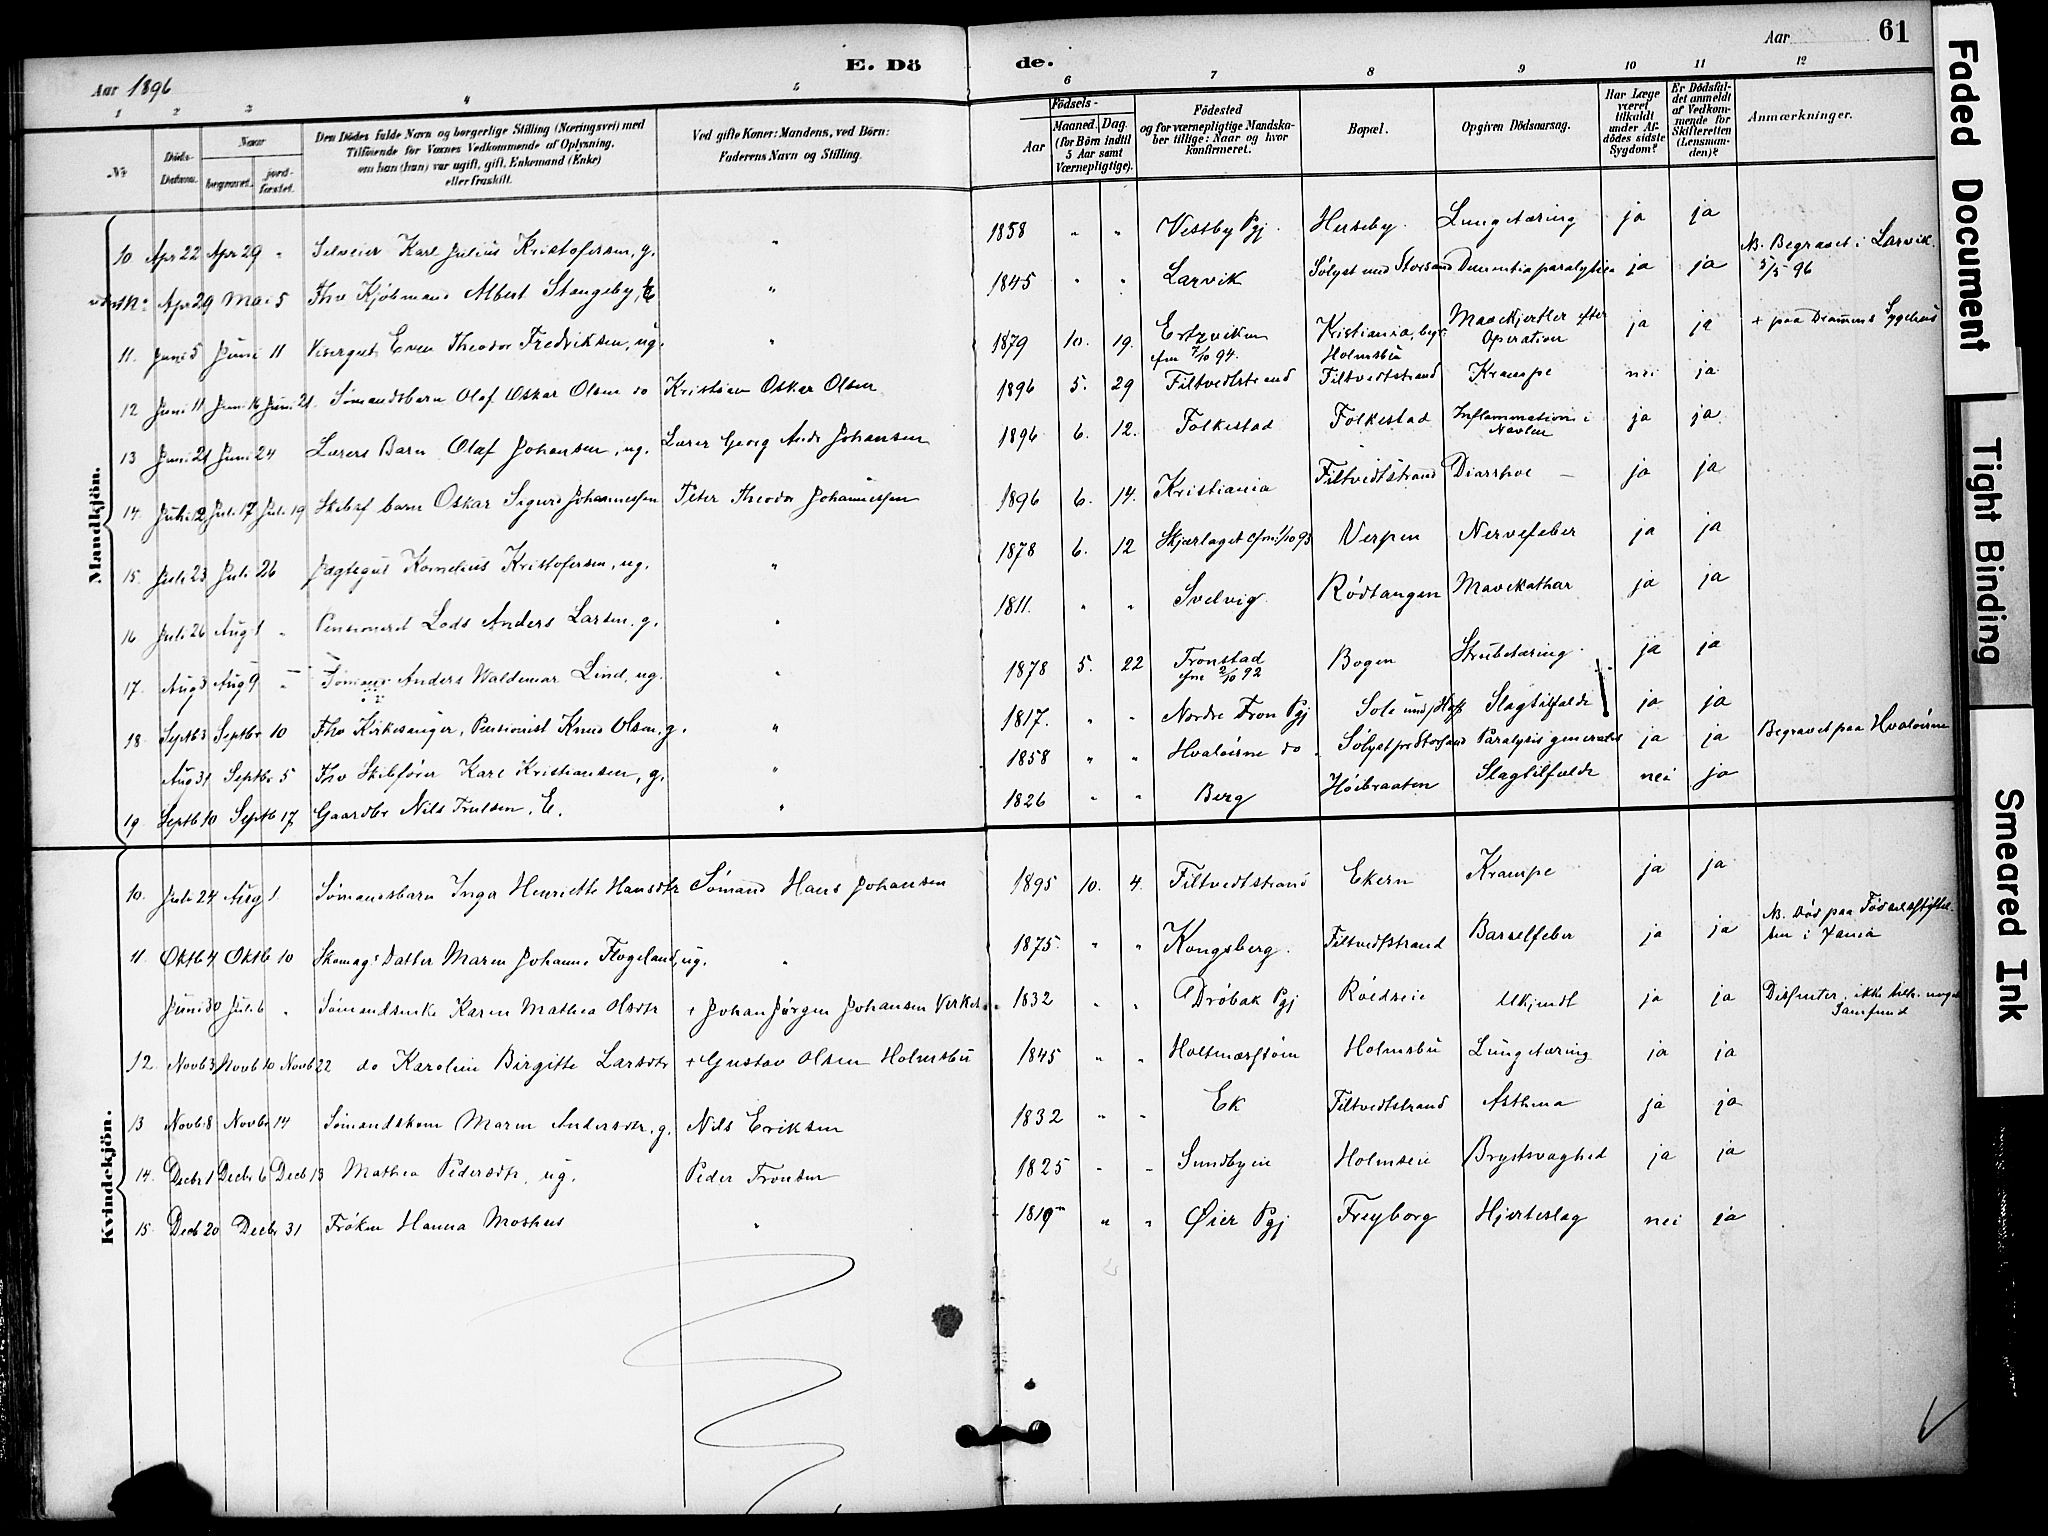 Aar 1896 E. Dö de. Aar 61
1 2 3 4 5 6 7 8 9 10 11 12
Nr. Döds-Datum. Naar begravet. jordfæstet. Den Dödes fulde Navn og borgerlige Stilling (Næringsvei) med Tilföiende for Voxnes Vedkommende af Oplysning, om han (hun) var ugift, gift, Enkemand (Enke) eller fraskilt. Ved gifte Koner: Mandens, ved Börn: Faderens Navn og Stilling. Födsels- Aar Maaned. Dag. (for Börn indtil 5 Aar samt Værnepligtige). Födested og for værnepligtige Mandskaber tillige: Naar og hvor konfirmeret. Bopæl. Opgiven Dödsaarsag. Har Læge været tilkaldt under Afdödes sidste Sygdom? Er Dödsfaldet anmeldt af Vedkommende for Skifteretten (Lensmanden)? Anmærkninger.
Mandkjön.
10 Apr 22 Apr 29 " Selveier Karl Julius Kristofersen, g. " 1858 " " Vestby Pgj. Herseby. Lungetæring ja ja
Apr 29 Mai 5 Fhv Kjöbmand Albert Stangeby, E " 1845 " " Larvik Sølyst und Storsand Dementia paralytica ja ja NB. Begravet i Larvik 5/5 96
11. Juni 5 Juni 11 Visergut Even Theodor Fredriksen, ug. " 1879 10. 19. Ertzviken cfm 7/10 94. Kristiania, Holmsbu Mavekjertler efter Operation ja ja + paa Drammens Sygehus
12 Juni 11 Juni 16 Juni 21. Sømandsbarn Olaf Oskar Olsen do Kristian Oskar Olsen 1896 5. 29 Filtvedtstrand Filtvedtstrand Krampe nei ja
13 Juni 21 Juni 24 Lærers Barn Olaf Johansen, ug. Lærer Georg Andr Johansen 1896 6. 12. Folkestad Folkestad Inflammation i Navlen ja ja
14. Juli 12 Juli 17 Juli 19 Skibsf barn Oskar Sigurd Johannessen Peter Theodor Johannessen 1896 6. 14. Kristiania Filtvedtstrand Diarrhoe – ja ja
15. Juli 23 Juli 26 Jagtegut Kornelius Kristofersen, ug. " 1878 6. 12 Skjærlaget cfm 1/10 93 Verpen Nervefeber ja ja
16 Juli 26 Aug 1 " Pensioneret Lods Anders Larsen, g. " 1811. " " Svelvig Rödtangen Mavekathar ja ja
17. Aug 3 Aug 9 " Sømand Anders Waldemar Lind, ug. " 1878 5. 22 Tronstad cfm 2/10 92 Bogen Strubetæring. ja ja
18. Septb 3 Septbr 10 Fhv Kirkesanger, Pensionist Knud Olsen, g. " 1817. " " Nordre Fron Pgj Sole und Hofs Slagtilfælde ja ja
Aug 31 Septbr 5 Fhv Skibsfører Karl Kristiansen, g. " 1858 " " Hvaløerne do Sølyst pr Storsand Paralysis generalis ja ja Begravet paa Hvaløerne
19. Septb 10 Septb 17 Gaardbr Nils Trulsen, E. " 1826 " " Berg Høibraaten Slagtilfælde nei ja
Kvindekjön.
10. Juli 24 Aug 1. Sømandsbarn Inga Henriette Hansdtr Sømand Hans Johansen 1895 10. 4. Filtvedtstrand Ekern Krampe ja ja
11. Oktb 4 Oktb 10 Skomag. Datter Maren Johanne Flogeland, ug. " 1875. " " Kongsberg. Filtvedtstrand Barselfeber ja ja NB. Død paa Fødselsstiftelsen i Xania
Juni 30 Juli 6 " Sømandsenke Karen Mathea Olsdtr + Johan Jørgen Johansen 1832 " " Drøbak Pgj Røedseie Ukjendt ja ja Disfenter, ikke tilh. noget Samfund
12. Novb 3 Novb 10 Novb 22 do Karoline Birgitte Larsdtr + Gustav Olsen Holmsbu 1845 " " Holtmarstøen Holmsbu Lungetæring ja ja
13 Novb 8 Novbr 14 Sømandskone Maren Andersdtr, g. Nils Eriksen 1832 " " Ek Filtvedtstrand Asthma ja ja
14. Decbr 1 Decbr 6 Decb 13 Mathea Pedersdtr, ug. Peder Tronsen 1825 " " Sundbyeie Holmseie Brystsvaghed ja ja
15. Decb 20 Decbr 31 Frøken Hanna Moshus " 1819 " " Øier Pgj Freyborg Hjerteslag nei ja
Faded Document
Tight Binding
Smeared Ink